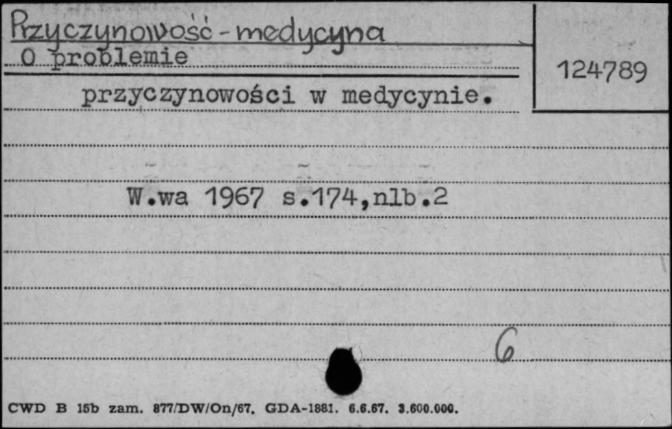 Przyczynowość - medycyna
O problemie
124789
przyczynowości w medycynie.
W.wa 1967 s.174,nlb.2
6
CWD B 15b zam. 877/DW/On/67. GDA-1881. 6.6.67. 3.600.000.